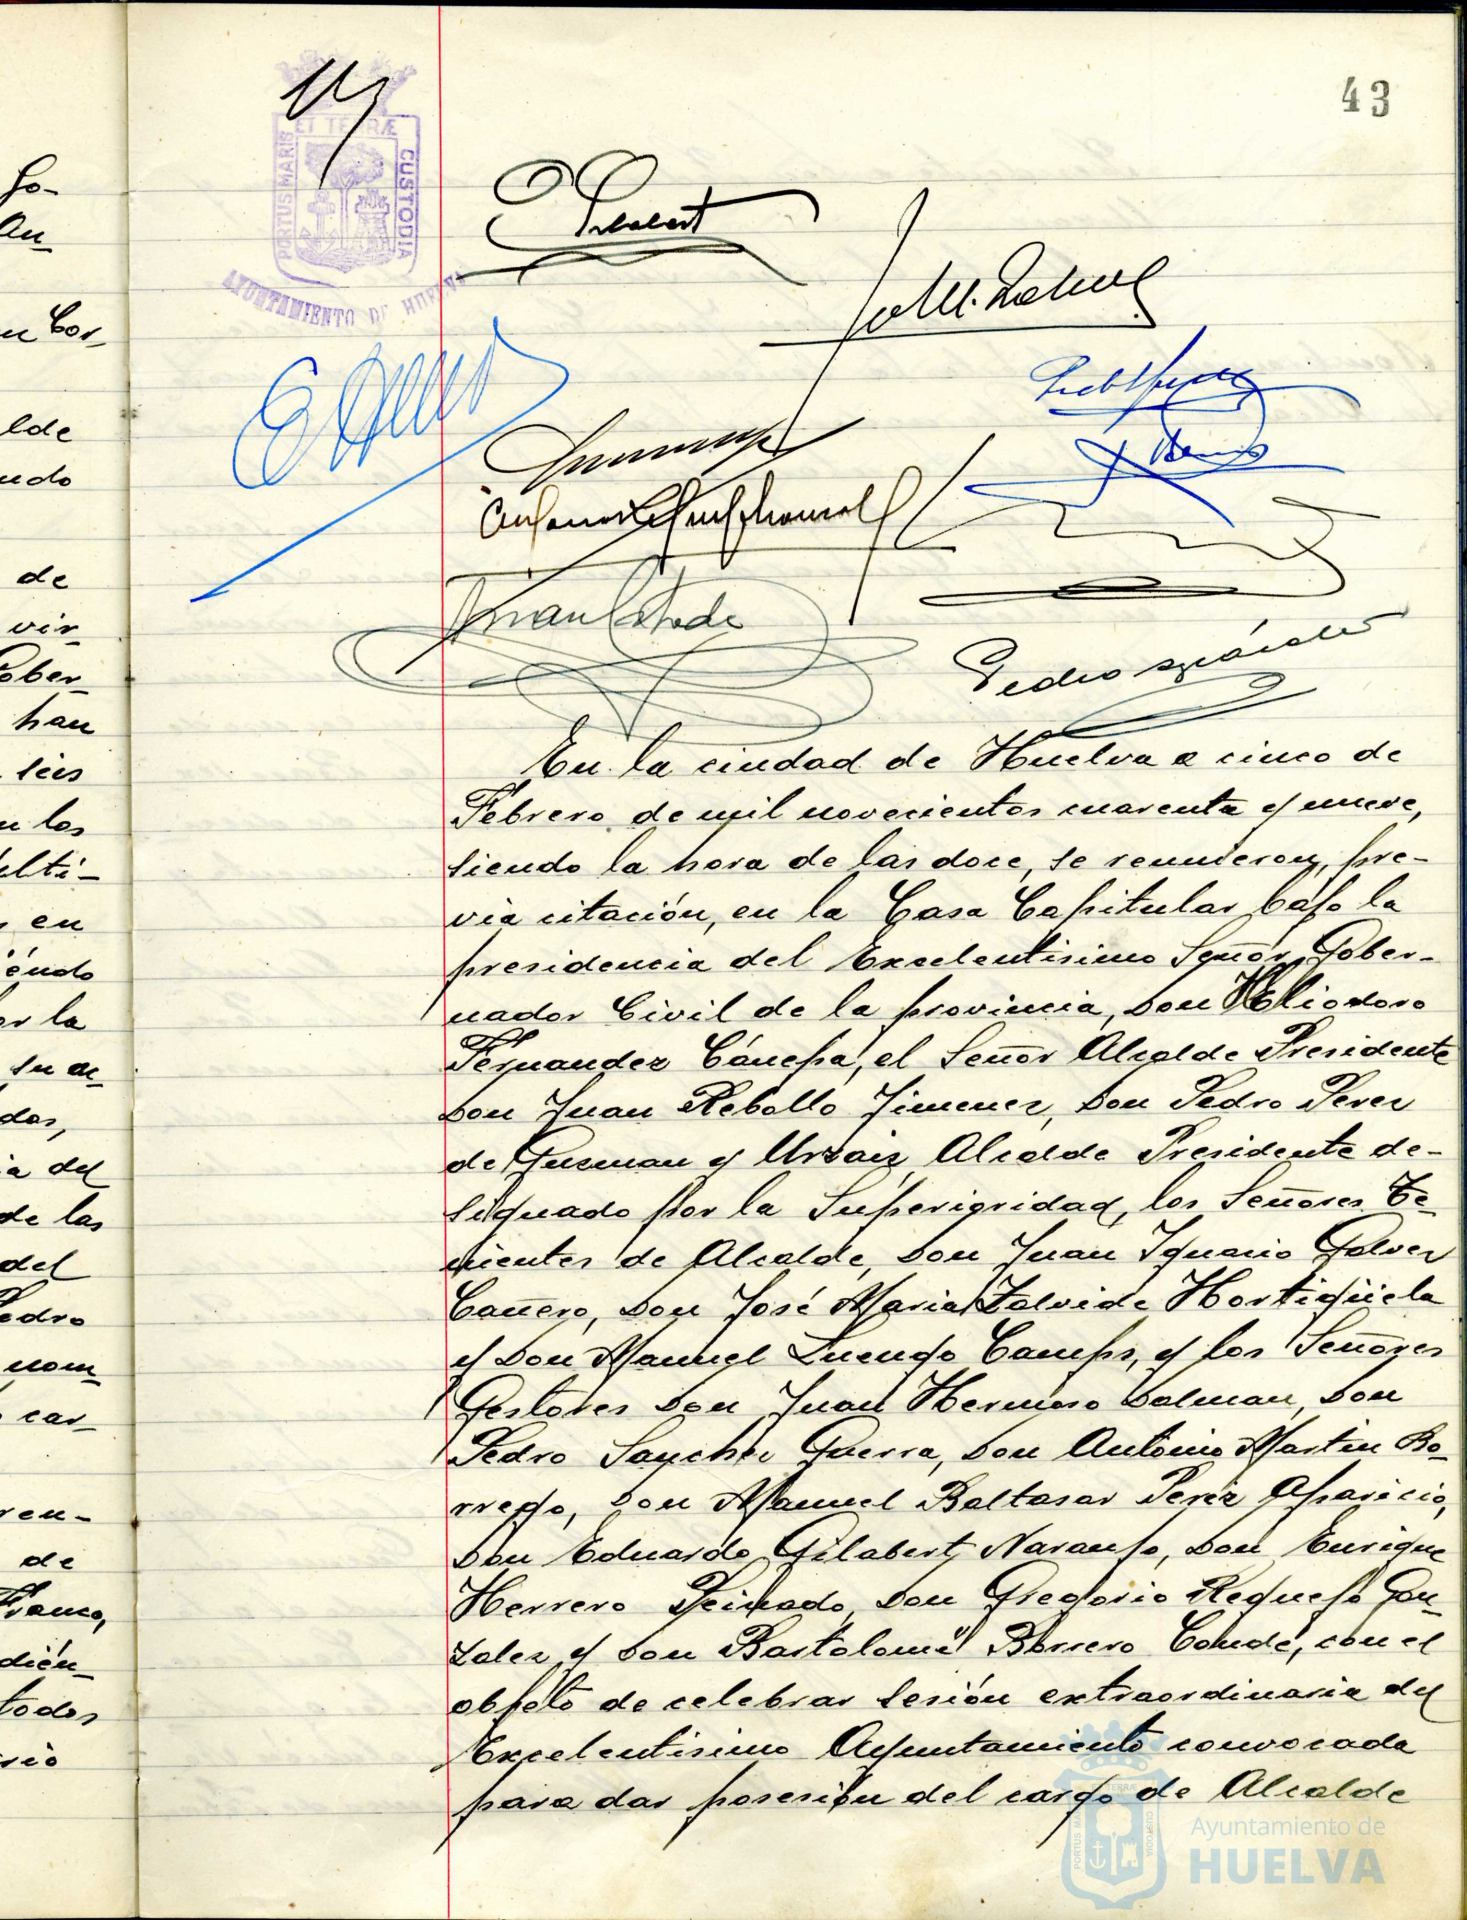 43
ET TERRÆ
PORTUS MARIS
CUSTODIA
AYUNTAMIENTO DE HUELVA
Juan Estrade
Pedro
En la ciudad de Huelva a cinco de
Febrero de mil novecientos cuarenta y nueve,
siendo la hora de las doce, se reunieron, pre-
via citación, en la Casa Capitular bajo la
presidencia del Excelentisimo Señor Gober-
nador Civil de la provincia, Don Heliodoro
Fernandez Cánepa, el Señor Alcalde Presidente
Don Juan Rebollo Jimenez, Don Pedro Perez
de Guzman y Urzaiz Alcalde Presidente de-
signado por la Superioridad, los Señores Te-
nientes de Alcalde, Don Juan Ignacio Galvez
Cañero, Don José Maria Zalvide Hortigüela
y Don Manuel Luengo Camps, y los Señores
Gestores Don Juan Hermoso Dalman, Don
Pedro Sanchez Guerra, Don Antonio Martin Bo-
rrego, Don Manuel Baltasar Perez Aparicio,
Don Eduardo Gilabert Naranjo, Don Enrique
Herrero Peinado, Don Gregorio Requejo Gon-
zalez y Don Bartolomé Borrero Conde, con el
objeto de celebrar sesión extraordinaria del
Excelentisimo Ayuntamiento convocada
para dar posesión del cargo de Alcalde
Ayuntamiento de
HUELVA
go-
en Cor-
lde
ndo
de
vir-
Gober-
han
seis
n los
en
iendo
or la
su a-
dos,
ia del
de las
del
Pedro
nom-
car-
ren-
de
Franco,
dién-
todos
rio